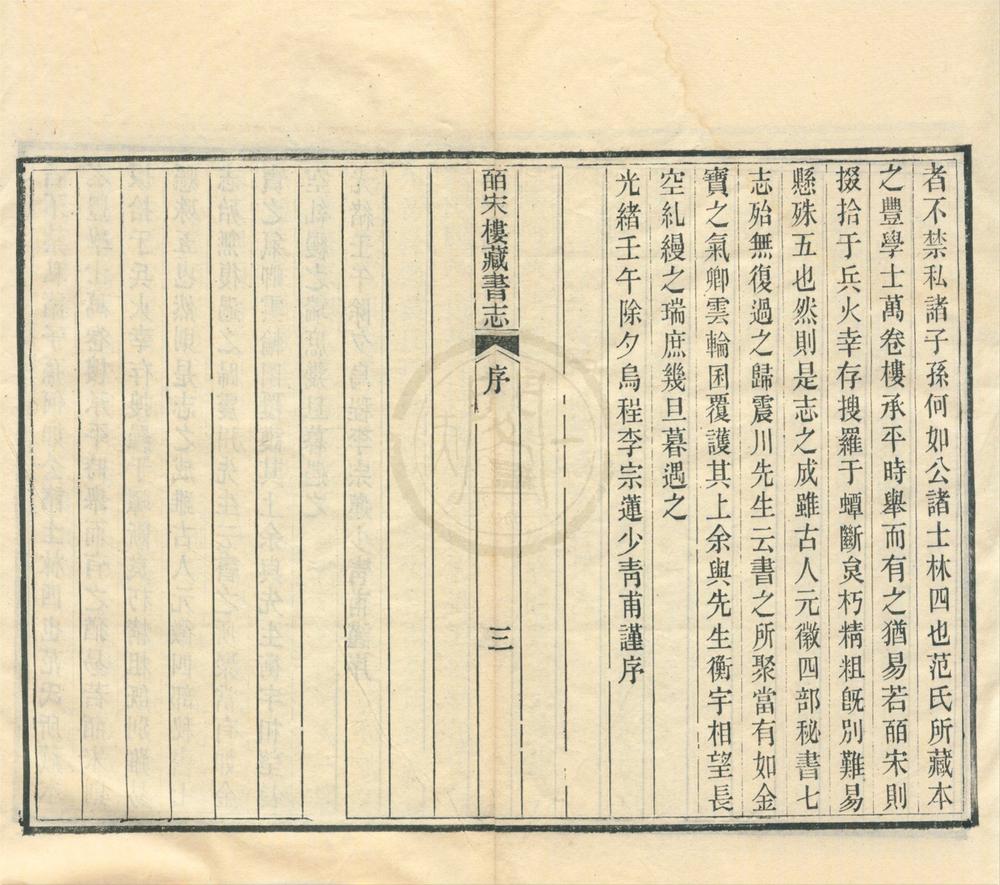 者不禁私諸子孫何如公諸士林四也范氏所藏本
之豐學士萬卷樓承平時舉而有之猶易若皕宋則
掇拾于兵火幸存搜羅于蟫斷炱朽精粗旣別難易
懸殊五也然則是志之成雖古人元徽四部秘書七
志殆無復過之歸震川先生云書之所聚當有如金
寶之氣卿雲輪囷覆護其上余與先生衡宇相望長
空糺縵之瑞庶幾旦暮遇之
光緒壬午除夕烏程李宗蓮少靑甫謹序
皕宋樓藏書志
序
三